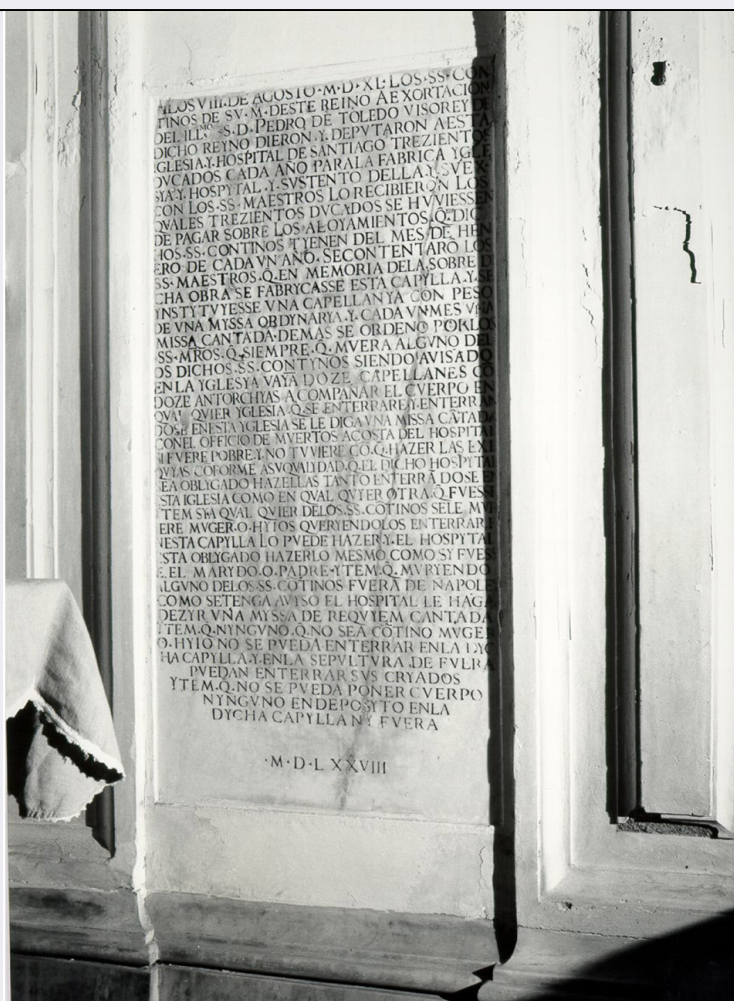 A LOS VIII·DE AGOSTO·M·D·XL·LOS·SS·CON
TINOS DE SV·M·DESTE REINO A EXORTACION
DEL ILLᴹᴼ S·D·PEDRO DE TOLEDO VISOREY DE
DICHO REYNO DIERON·Y·DEPVTARON AESTA
YGLESIA·Y·HOSPITAL DE SANTIAGO TREZIENTOS
DVCADOS CADA AÑO PARALA FABRICA YGLE
SYA·Y·HOSPYTAL·Y·SVSTENTO DELLA·Y·
CON LOS·SS·MAESTROS LO RECIBIERON LOS
QVALES TREZIENTOS DVCADOS SE HVVIESSEN
DE PAGAR SOBRE LOS ALOYAMIENTOS·Q̄·DIC
HOS·SS·CONTINOS TYENEN DEL MES DE HEN
ERO DE CADA VN AÑO·SECONTENTARŌ LOS
SS·MAESTROS·Q·EN MEMORIA DELA SOBRE DI
CHA OBRA SE FABRYCASSE ESTA CAPYLLA·Y·SE
YNSTYTVYESSE VNA CAPELLANYA CON PESO
DE VNA MYSSA ORDYNARYA·Y·CADA VNMES VNA
MISSA CANTADA·DEMAS SE ORDENO POR LOS
SS·MR̄OS·Q̄·SIEMPRE·Q̄·MVERA ALGVNO DEL
OS DICHOS·SS·CONTYNOS SIENDO AVISADO
ENLA YGLESYA VAYA DOZE CAPELLANES CŌ
DOZE ANTORCHYAS ACOMPAÑAR EL CVERPO EN
QVAL QVIER YGLESIA·Q·SE ENTERRARE·Y·ENTERRAN
DOSE ENESTA YGLESIA SE LE DIGA VNA MISSA CĀTADA
CONEL OFFICIO DE MVERTOS ACOSTA DEL HOSPITAL
SI FVERE POBRE·Y·NO TVVIERE CO·Q̄·HAZER LAS EXE
QVYAS CŌFORME ASVQVALYDAD·Q̄·EL DICHO HOSPYTAL
SEA OBLYGADO HAZELLAS TANTO ENTERRĀDOSE EN
ESTA IGLESIA COMO EN QVAL QVYER OTRA·Q̄·FVESSE
YTEM SYA QVAL QVIER DELOS·SS·CŌTINOS SELE MV
ERE MVGER·O·HYIOS QVERYENDOLOS ENTERRAR E
NESTA CAPYLLA LO PVEDE HAZER·Y·EL HOSPYTAL
ESTA OBLYGADO HAZERLO MESMO COMO SY FVESS
E·EL MARYDO·O·PADRE·YTEM·Q̄·MVRYENDO
ALGVNO DELOS·SS·CŌTINOS FVERA DE NAPOLE
COMO SETENGA AVYSO EL HOSPITAL LE HAGA
DEZYR VNA MYSSA DE REQVYEM CANTADA
YTEM·Q̄·NYNGVNO·Q̄·NO SEA CŌTINO MVGER
O·HYIO NO SE PVEDA ENTERRAR ENLA DYC
HA CAPYLLA·Y·ENLA SEPVLTVRA·DE FVERA
PVEDAN ENTERRAR SVS CRYADOS
YTEM·Q̄·NO SE PVEDA PONER CVERPO
NYNGVNO ENDEPOSYTO ENLA
DYCHA CAPYLLA NY FVERA
·M·D·LXXVIII